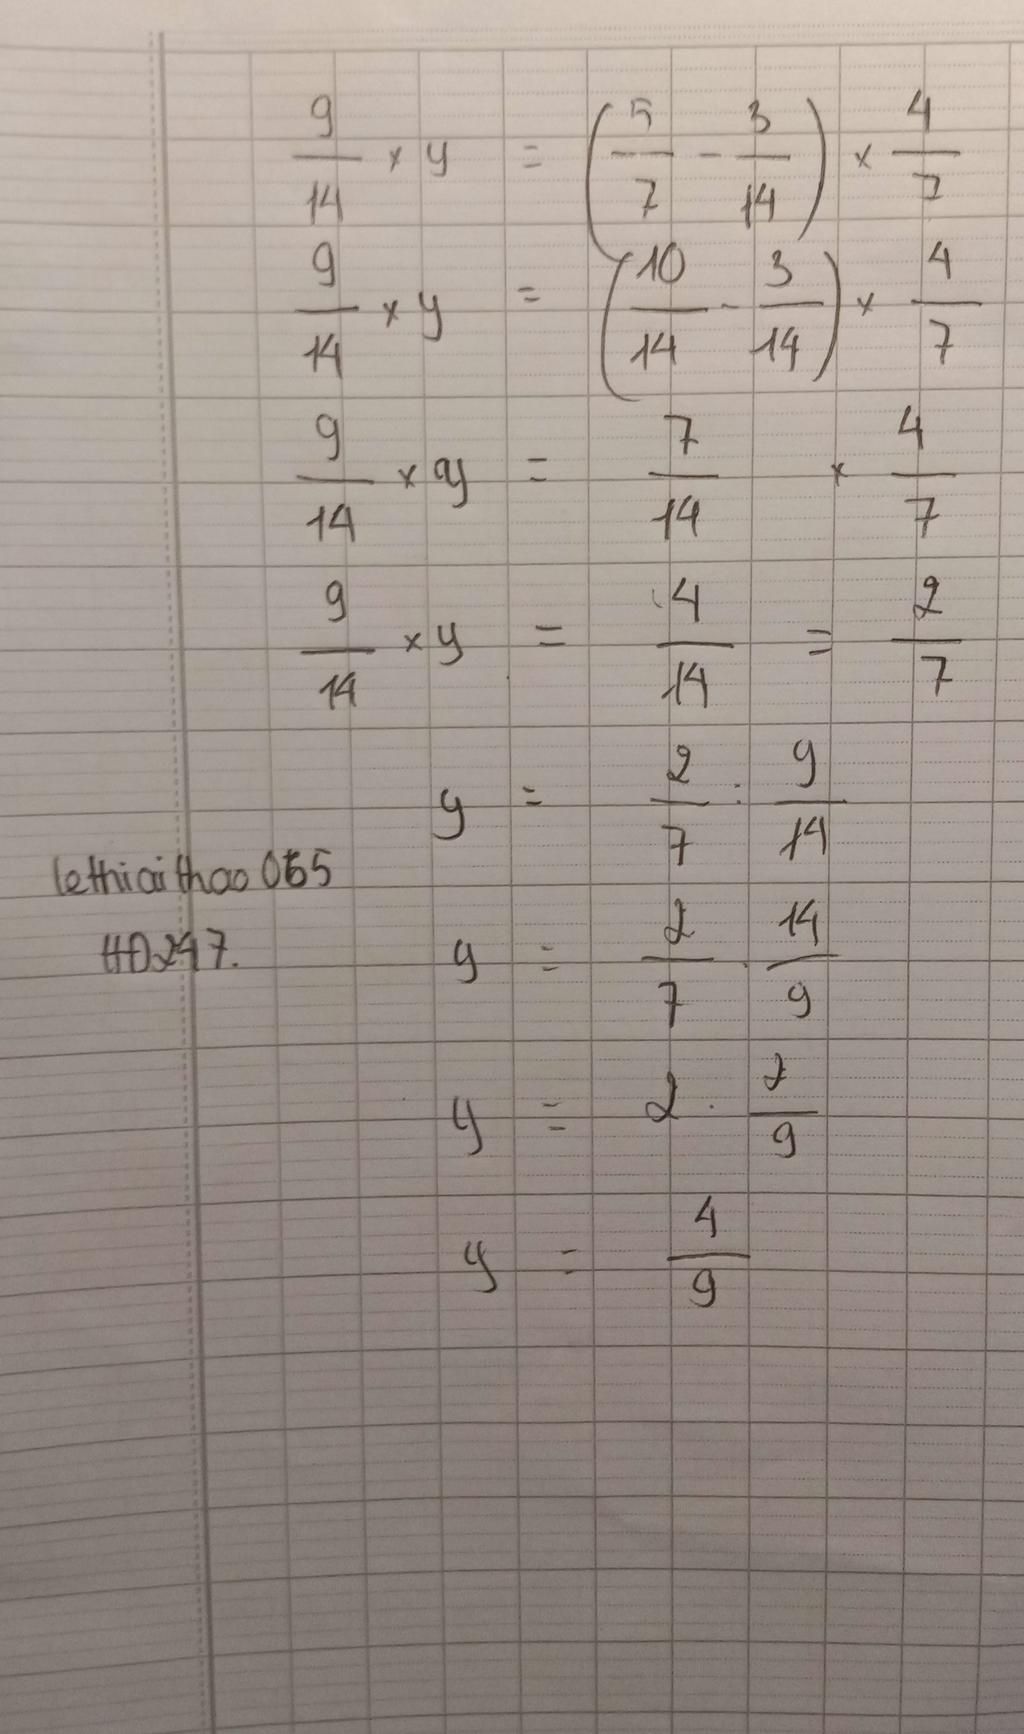 9/14 × y = (5/7 - 3/14) × 4/7
9/14 × y = (10/14 - 3/14) × 4/7
9/14 × y = 7/14 × 4/7
9/14 × y = 4/14 = 2/7
y = 2/7 : 9/14
lethiaithao065
HD247.
y = 2/7 . 14/9
y = 2 . 2/9
y = 4/9